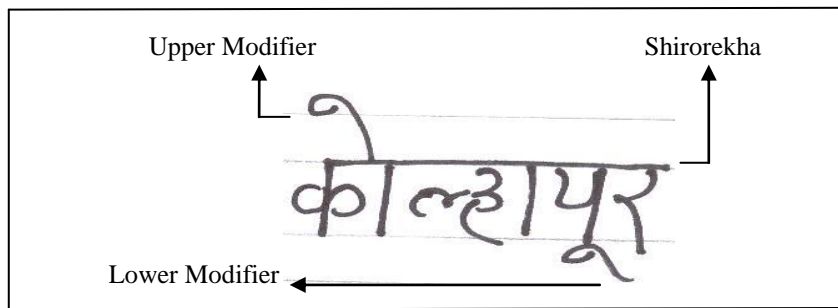 Upper Modifier Shirorekha
कोल्हापूर
Lower Modifier